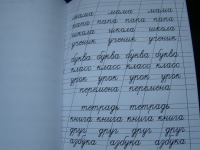 мама мама мама
папа папа папа папа
школа школа школа
ученик ученик ученик
буква буква буква буква
класс класс класс класс
урок урок урок урок
перемена перемена
тетрадь тетрадь
книга книга книга книга
друг друг друг друг
азбука азбука азбука